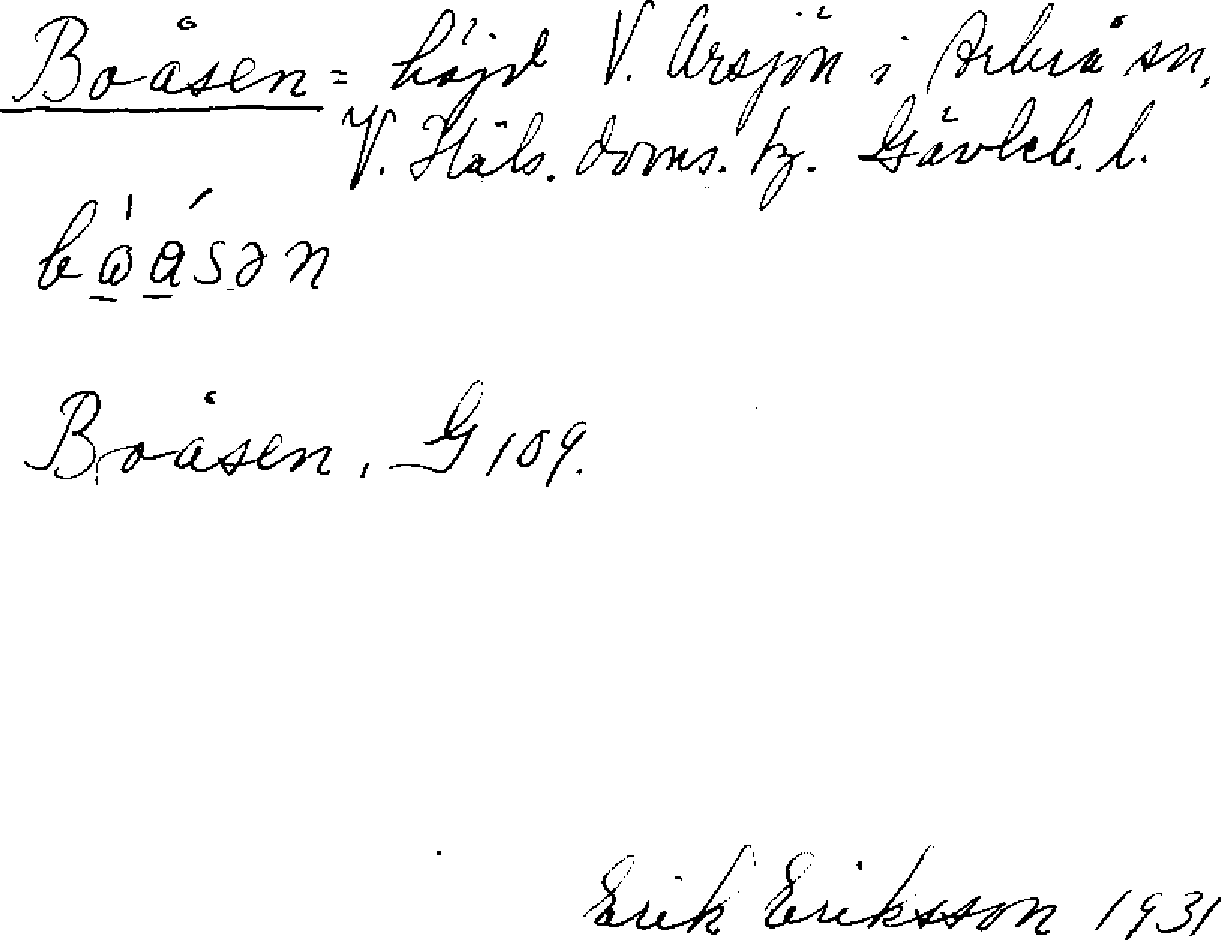 Boåsen = höjd V. Arsjön i Arbrå sn,
V. Häls. doms. tg. Gävleb. l.
Boåsen, G 109.
Erik Eriksson 1931